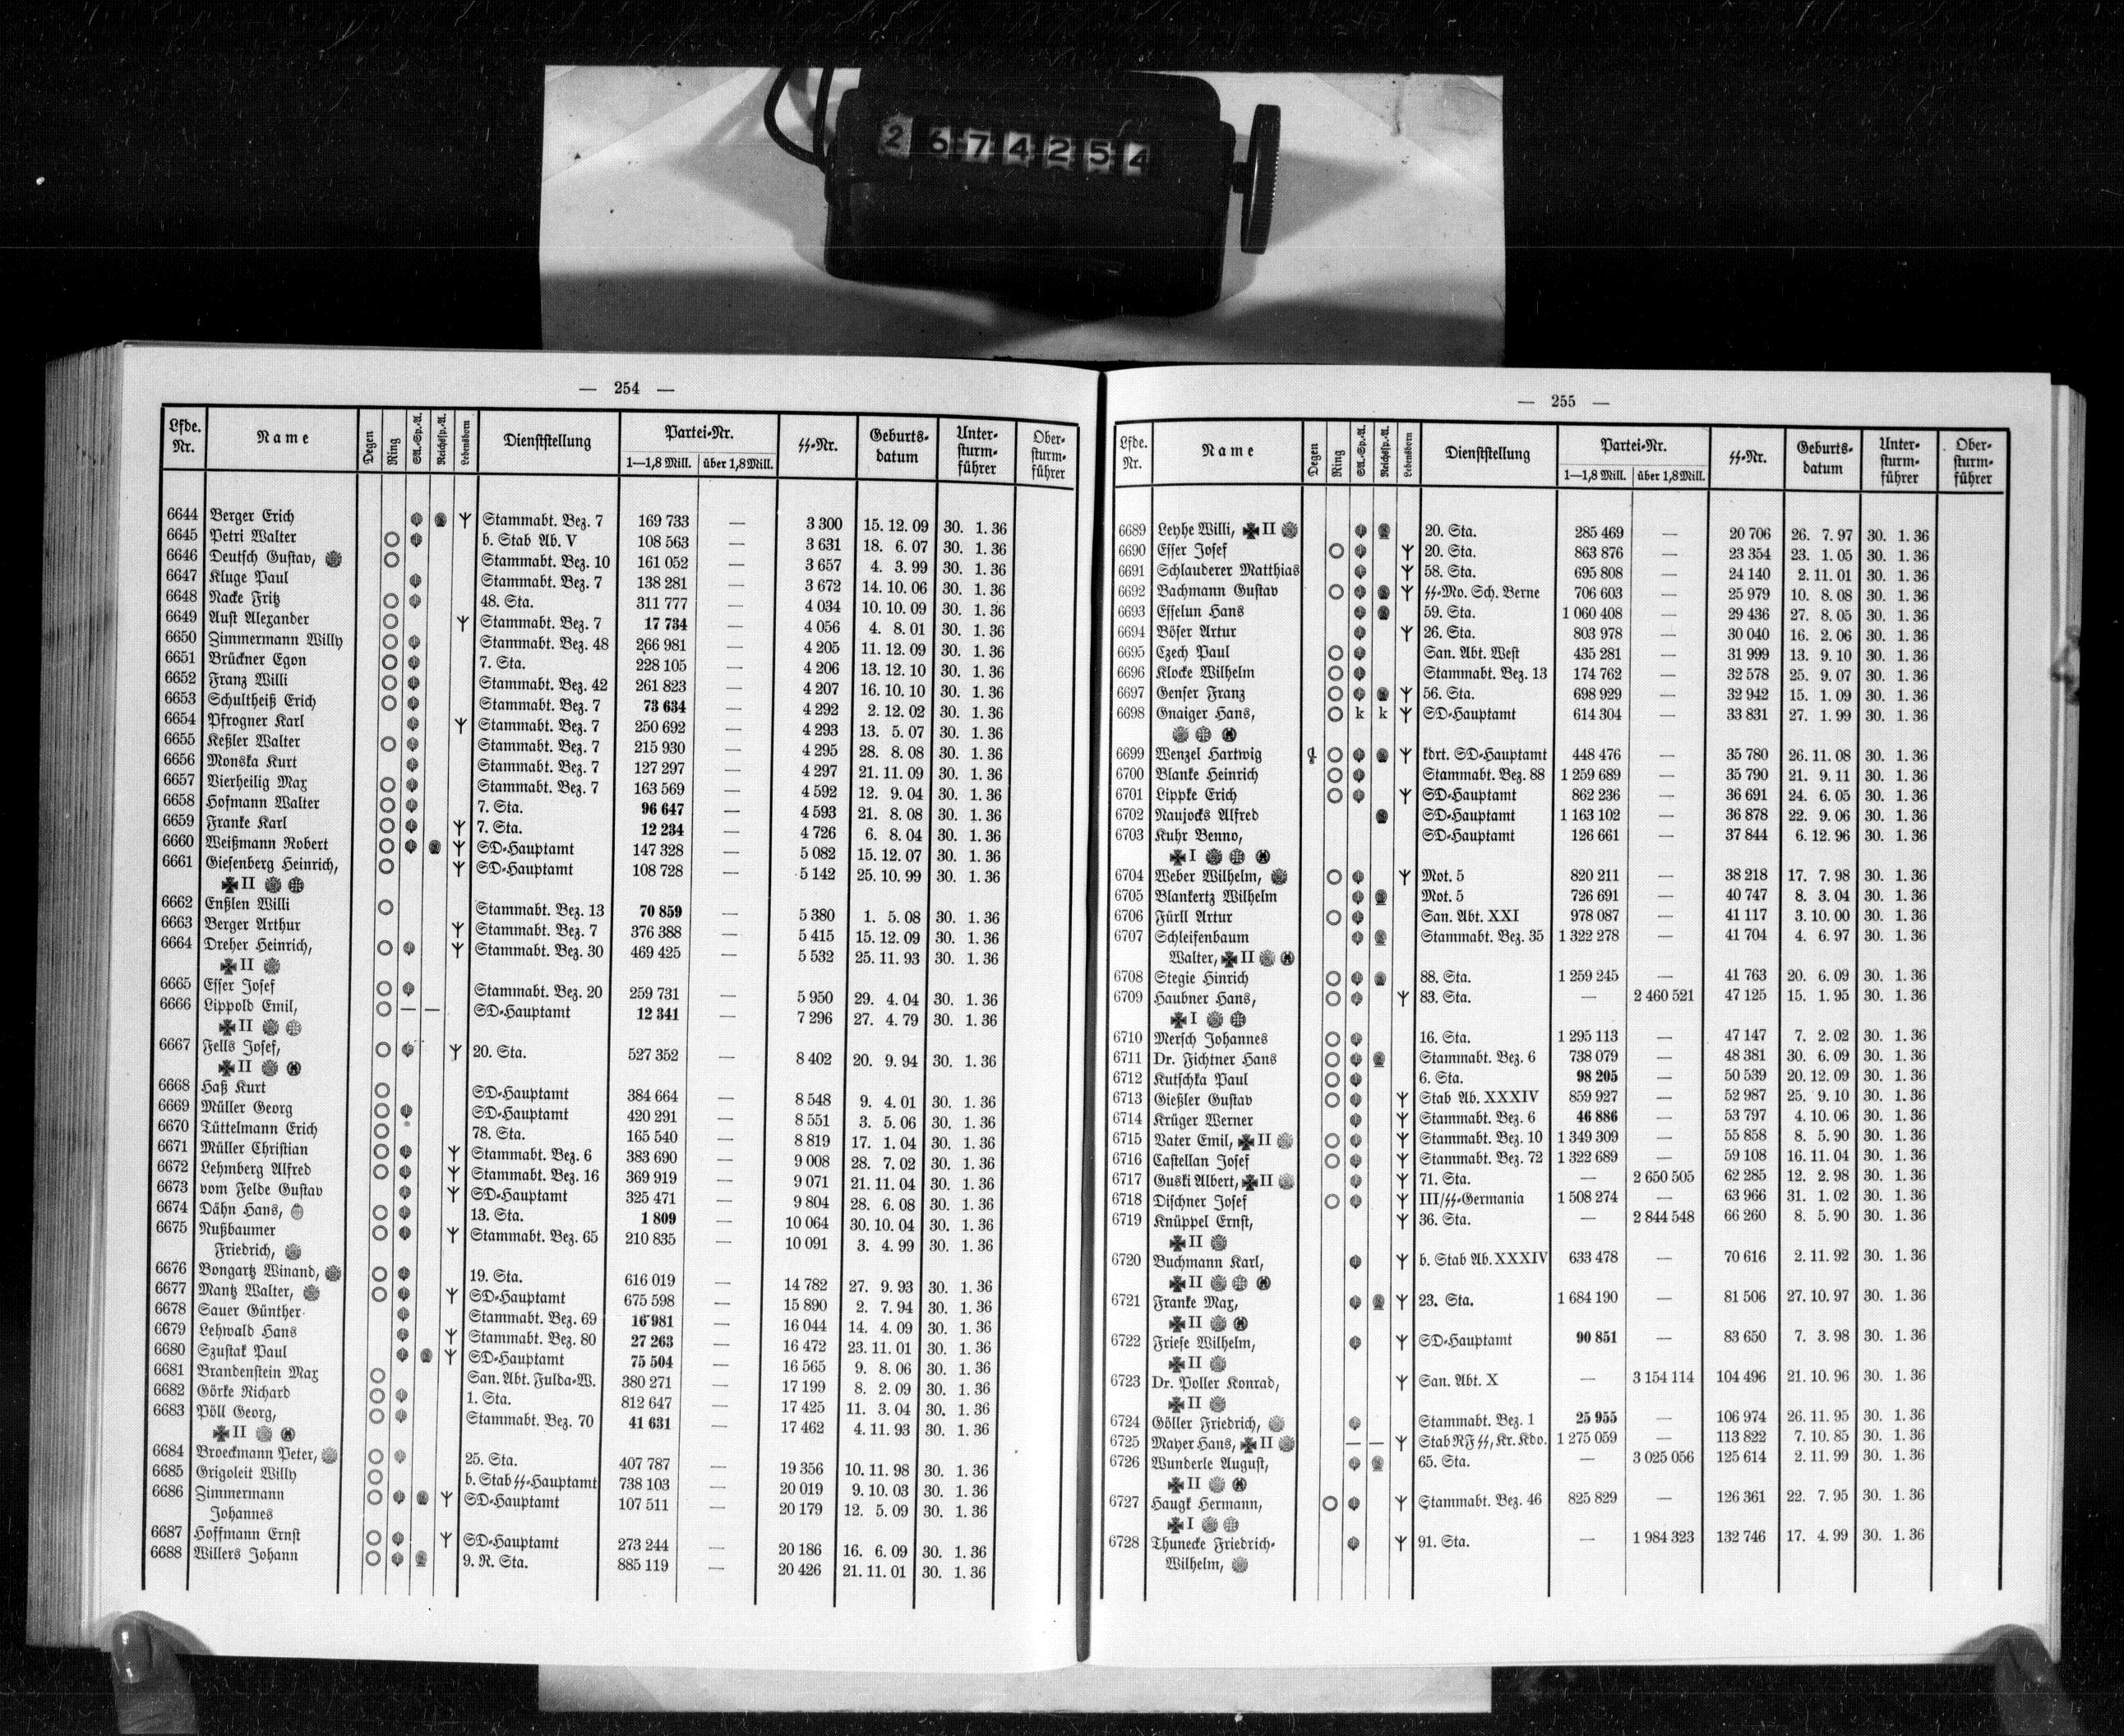 2674254
— 254 —
Lfde. Nr. Name Degen Ring SA.-Sp.-A. Reichssp.-A. Lebensborn Dienststellung Partei-Nr. 1—1,8 Mill. über 1,8 Mill. SS-Nr. Geburts-datum Unter-sturm-führer Ober-sturm-führer
6644 Berger Erich Stammabt. Bez. 7 169 733 — 3 300 15. 12. 09 30. 1. 36
6645 Petri Walter b. Stab Ab. V 108 563 — 3 631 18. 6. 07 30. 1. 36
6646 Deutsch Gustav, Stammabt. Bez. 10 161 052 — 3 657 4. 3. 99 30. 1. 36
6647 Kluge Paul Stammabt. Bez. 7 138 281 — 3 672 14. 10. 06 30. 1. 36
6648 Nacke Fritz 48. Sta. 311 777 — 4 034 10. 10. 09 30. 1. 36
6649 Aust Alexander Stammabt. Bez. 7 17 734 — 4 056 4. 8. 01 30. 1. 36
6650 Zimmermann Willy Stammabt. Bez. 48 266 981 — 4 205 11. 12. 09 30. 1. 36
6651 Brückner Egon 7. Sta. 228 105 — 4 206 13. 12. 10 30. 1. 36
6652 Franz Willi Stammabt. Bez. 42 261 823 — 4 207 16. 10. 10 30. 1. 36
6653 Schultheiß Erich Stammabt. Bez. 7 73 634 — 4 292 2. 12. 02 30. 1. 36
6654 Pfrogner Karl Stammabt. Bez. 7 250 692 — 4 293 13. 5. 07 30. 1. 36
6655 Keßler Walter Stammabt. Bez. 7 215 930 — 4 295 28. 8. 08 30. 1. 36
6656 Monska Kurt Stammabt. Bez. 7 127 297 — 4 297 21. 11. 09 30. 1. 36
6657 Vierheilig Max Stammabt. Bez. 7 163 569 — 4 592 12. 9. 04 30. 1. 36
6658 Hofmann Walter 7. Sta. 96 647 — 4 593 21. 8. 08 30. 1. 36
6659 Franke Karl 7. Sta. 12 234 — 4 726 6. 8. 04 30. 1. 36
6660 Weißmann Robert SD-Hauptamt 147 328 — 5 082 15. 12. 07 30. 1. 36
6661 Giesenberg Heinrich, SD-Hauptamt 108 728 — 5 142 25. 10. 99 30. 1. 36
II
6662 Enßlen Willi Stammabt. Bez. 13 70 859 — 5 380 1. 5. 08 30. 1. 36
6663 Berger Arthur Stammabt. Bez. 7 376 388 — 5 415 15. 12. 09 30. 1. 36
6664 Dreher Heinrich, Stammabt. Bez. 30 469 425 — 5 532 25. 11. 93 30. 1. 36
II
6665 Esser Josef Stammabt. Bez. 20 259 731 — 5 950 29. 4. 04 30. 1. 36
6666 Lippold Emil, — — SD-Hauptamt 12 341 — 7 296 27. 4. 79 30. 1. 36
II
6667 Fells Josef, 20. Sta. 527 352 — 8 402 20. 9. 94 30. 1. 36
II
6668 Haß Kurt SD-Hauptamt 384 664 — 8 548 9. 4. 01 30. 1. 36
6669 Müller Georg SD-Hauptamt 420 291 — 8 551 3. 5. 06 30. 1. 36
6670 Tüttelmann Erich 78. Sta. 165 540 — 8 819 17. 1. 04 30. 1. 36
6671 Müller Christian Stammabt. Bez. 6 383 690 — 9 008 28. 7. 02 30. 1. 36
6672 Lehmberg Alfred Stammabt. Bez. 16 369 919 — 9 071 21. 11. 04 30. 1. 36
6673 vom Felde Gustav SD-Hauptamt 325 471 — 9 804 28. 6. 08 30. 1. 36
6674 Dähn Hans, 13. Sta. 1 809 — 10 064 30. 10. 04 30. 1. 36
6675 Nußbaumer Stammabt. Bez. 65 210 835 — 10 091 3. 4. 99 30. 1. 36
Friedrich,
6676 Bongartz Winand, 19. Sta. 616 019 — 14 782 27. 9. 93 30. 1. 36
6677 Mantz Walter, SD-Hauptamt 675 598 — 15 890 2. 7. 94 30. 1. 36
6678 Sauer Günther Stammabt. Bez. 69 16 981 — 16 044 14. 4. 09 30. 1. 36
6679 Lehwald Hans Stammabt. Bez. 80 27 263 — 16 472 23. 11. 01 30. 1. 36
6680 Szustak Paul SD-Hauptamt 75 504 — 16 565 9. 8. 06 30. 1. 36
6681 Brandenstein Max San. Abt. Fulda-W. 380 271 — 17 199 8. 2. 09 30. 1. 36
6682 Görke Richard 1. Sta. 812 647 — 17 425 11. 3. 04 30. 1. 36
6683 Pöll Georg, Stammabt. Bez. 70 41 631 — 17 462 4. 11. 93 30. 1. 36
II
6684 Broeckmann Peter, 25. Sta. 407 787 — 19 356 10. 11. 98 30. 1. 36
6685 Grigoleit Willy b. Stab SS-Hauptamt 738 103 — 20 019 9. 10. 03 30. 1. 36
6686 Zimmermann SD-Hauptamt 107 511 — 20 179 12. 5. 09 30. 1. 36
Johannes
6687 Hoffmann Ernst SD-Hauptamt 273 244 — 20 186 16. 6. 09 30. 1. 36
6688 Willers Johann 9. R. Sta. 885 119 — 20 426 21. 11. 01 30. 1. 36
— 255 —
Lfde. Nr. Name Degen Ring SA.-Sp.-A. Reichssp.-A. Lebensborn Dienststellung Partei-Nr. 1—1,8 Mill. über 1,8 Mill. SS-Nr. Geburts-datum Unter-sturm-führer Ober-sturm-führer
6689 Leyhe Willi, II 20. Sta. 285 469 — 20 706 26. 7. 97 30. 1. 36
6690 Esser Josef 20. Sta. 863 876 — 23 354 23. 1. 05 30. 1. 36
6691 Schlauderer Matthias 58. Sta. 695 808 — 24 140 2. 11. 01 30. 1. 36
6692 Bachmann Gustav SS-Mo. Sch. Berne 706 603 — 25 979 10. 8. 08 30. 1. 36
6693 Esselun Hans 59. Sta. 1 060 408 — 29 436 27. 8. 05 30. 1. 36
6694 Böser Artur 26. Sta. 803 978 — 30 040 16. 2. 06 30. 1. 36
6695 Czech Paul San. Abt. West 435 281 — 31 999 13. 9. 10 30. 1. 36
6696 Klocke Wilhelm Stammabt. Bez. 13 174 762 — 32 578 25. 9. 07 30. 1. 36
6697 Genser Franz 56. Sta. 698 929 — 32 942 15. 1. 09 30. 1. 36
6698 Gnaiger Hans, k k SD-Hauptamt 614 304 — 33 831 27. 1. 99 30. 1. 36
6699 Wenzel Hartwig kdrt. SD-Hauptamt 448 476 — 35 780 26. 11. 08 30. 1. 36
6700 Blanke Heinrich Stammabt. Bez. 88 1 259 689 — 35 790 21. 9. 11 30. 1. 36
6701 Lippke Erich SD-Hauptamt 862 236 — 36 691 24. 6. 05 30. 1. 36
6702 Naujocks Alfred SD-Hauptamt 1 163 102 — 36 878 22. 9. 06 30. 1. 36
6703 Kuhr Benno, SD-Hauptamt 126 661 — 37 844 6. 12. 96 30. 1. 36
I
6704 Weber Wilhelm, Mot. 5 820 211 — 38 218 17. 7. 98 30. 1. 36
6705 Blankertz Wilhelm Mot. 5 726 691 — 40 747 8. 3. 04 30. 1. 36
6706 Fürll Artur San. Abt. XXI 978 087 — 41 117 3. 10. 00 30. 1. 36
6707 Schleifenbaum Stammabt. Bez. 35 1 322 278 — 41 704 4. 6. 97 30. 1. 36
Walter, II
6708 Stegie Hinrich 88. Sta. 1 259 245 — 41 763 20. 6. 09 30. 1. 36
6709 Haubner Hans, 83. Sta. — 2 460 521 47 125 15. 1. 95 30. 1. 36
I
6710 Mersch Johannes 16. Sta. 1 295 113 — 47 147 7. 2. 02 30. 1. 36
6711 Dr. Fichtner Hans Stammabt. Bez. 6 738 079 — 48 381 30. 6. 09 30. 1. 36
6712 Kutschka Paul 6. Sta. 98 205 — 50 539 20. 12. 09 30. 1. 36
6713 Gießler Gustav Stab Ab. XXXIV 859 927 — 52 987 25. 9. 10 30. 1. 36
6714 Krüger Werner Stammabt. Bez. 6 46 886 — 53 797 4. 10. 06 30. 1. 36
6715 Vater Emil, II Stammabt. Bez. 10 1 349 309 — 55 858 8. 5. 90 30. 1. 36
6716 Castellan Josef Stammabt. Bez. 72 1 322 689 — 59 108 16. 11. 04 30. 1. 36
6717 Guski Albert, II 71. Sta. — 2 650 505 62 285 12. 2. 98 30. 1. 36
6718 Dischner Josef III/SS-Germania 1 508 274 — 63 966 31. 1. 02 30. 1. 36
6719 Knüppel Ernst, 36. Sta. — 2 844 548 66 260 8. 5. 90 30. 1. 36
II
6720 Buchmann Karl, b. Stab Ab. XXXIV 633 478 — 70 616 2. 11. 92 30. 1. 36
II
6721 Franke Max, 23. Sta. 1 684 190 — 81 506 27. 10. 97 30. 1. 36
II
6722 Friese Wilhelm, SD-Hauptamt 90 851 — 83 650 7. 3. 98 30. 1. 36
II
6723 Dr. Poller Konrad, San. Abt. X — 3 154 114 104 496 21. 10. 96 30. 1. 36
II
6724 Göller Friedrich, Stammabt. Bez. 1 25 955 — 106 974 26. 11. 95 30. 1. 36
6725 Mayer Hans, II — — Stab RF SS, Kr. Kdo. 1 275 059 — 113 822 7. 10. 85 30. 1. 36
6726 Wunderle August, 65. Sta. — 3 025 056 125 614 2. 11. 99 30. 1. 36
II
6727 Haugk Hermann, Stammabt. Bez. 46 825 829 — 126 361 22. 7. 95 30. 1. 36
I
6728 Thunecke Friedrich- 91. Sta. — 1 984 323 132 746 17. 4. 99 30. 1. 36
Wilhelm,